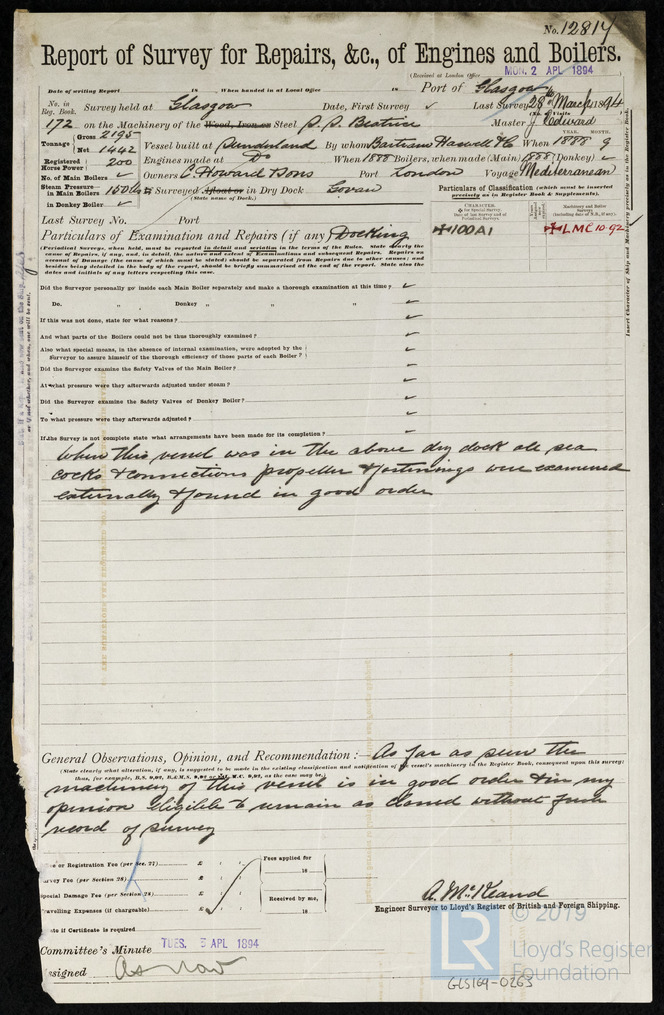 No. 12814
Report of Survey for Repairs, &c., of Engines and Boilers.
(Received at London Office MON. 2 APL 1894
Date of writing Report 18 When handed in at Local Office 18 Port of Glasgow
No. in Reg. Book. Survey held at Glasgow Date, First Survey ✓ Last Survey 28th March 1894
(No. of Visits
172 on the Machinery of the Wood, Iron or Steel S.S. Beatrice Master J Edward
Tonnage Gross 2195 Net 1442 Vessel built at Sunderland By whom Bartram Haswell & Co When YEAR. 1888 MONTH. 9
Registered Horse Power 200 Engines made at Do When 1888 Boilers, when made (Main) 1888 (Donkey) ✓
No. of Main Boilers ✓ Owners C. Howard Sons Port London Voyage Mediterranean
Steam Pressure in Main Boilers 160 lbs Surveyed Afloat or in Dry Dock Govan
(State name of Dock.)
in Donkey Boiler ✓
Particulars of Classification (which must be inserted precisely as in Register Book & Supplements).
CHARACTER.
Machinery and Boiler Surveys
✠100A1 ✠LMC 10-92
Last Survey No. Port
Particulars of Examination and Repairs (if any) Docking
(Periodical Surveys, when held, must be reported in detail and seriatim in the terms of the Rules. State clearly the cause of Repairs, if any, and, in detail, the nature and extent of Examinations and subsequent Repairs. Repairs on account of Damage (the cause of which must be stated) should be separated from Repairs due to other causes; and besides being detailed in the body of the report, should be briefly summarised at the end of the report. State also the dates and initials of any letters respecting this case.
Did the Surveyor personally go inside each Main Boiler separately and make a thorough examination at this time? ✓
Do. „ Donkey „ „ „ ✓
If this was not done, state for what reasons? ✓
And what parts of the Boilers could not be thus thoroughly examined? ✓
Also what special means, in the absence of internal examination, were adopted by the
Surveyor to assure himself of the thorough efficiency of those parts of each Boiler? ✓
Did the Surveyor examine the Safety Valves of the Main Boiler? ✓
At what pressure were they afterwards adjusted under steam? ✓
Did the Surveyor examine the Safety Valves of Donkey Boiler? ✓
To what pressure were they afterwards adjusted? ✓
If the Survey is not complete state what arrangements have been made for its completion? ✓
When this vessel was in the above dry dock all sea
cocks & connections propeller & fastenings were examined
externally & found in good order
General Observations, Opinion, and Recommendation :— As far as seen the
(State clearly what alteration, if any, is suggested to be made in the existing classification and notification of the vessel's machinery in the Register Book, consequent upon this survey;
thus, for example, B.S. 9,92, B.&M.S. 9,92 or M.C. 9,92, as the case may be.)
machinery of this vessel is in good order & in my
opinion Eligible to remain as classed without fresh
record of survey
or Registration Fee (per Sec. 27) £ : : Fees applied for
Survey Fee (per Section 28) £ : : 18
Special Damage Fee (per Section 28) £ : : Received by me,
Travelling Expenses (if chargeable) £ : : 18
A. McKeand
Engineer Surveyor to Lloyd's Register of British and Foreign Shipping.
State if Certificate is required
Committee's Minute TUES. 3 APL 1894
Assigned As now
LR © 2019
Lloyd's Register
Foundation
GLS164-0263